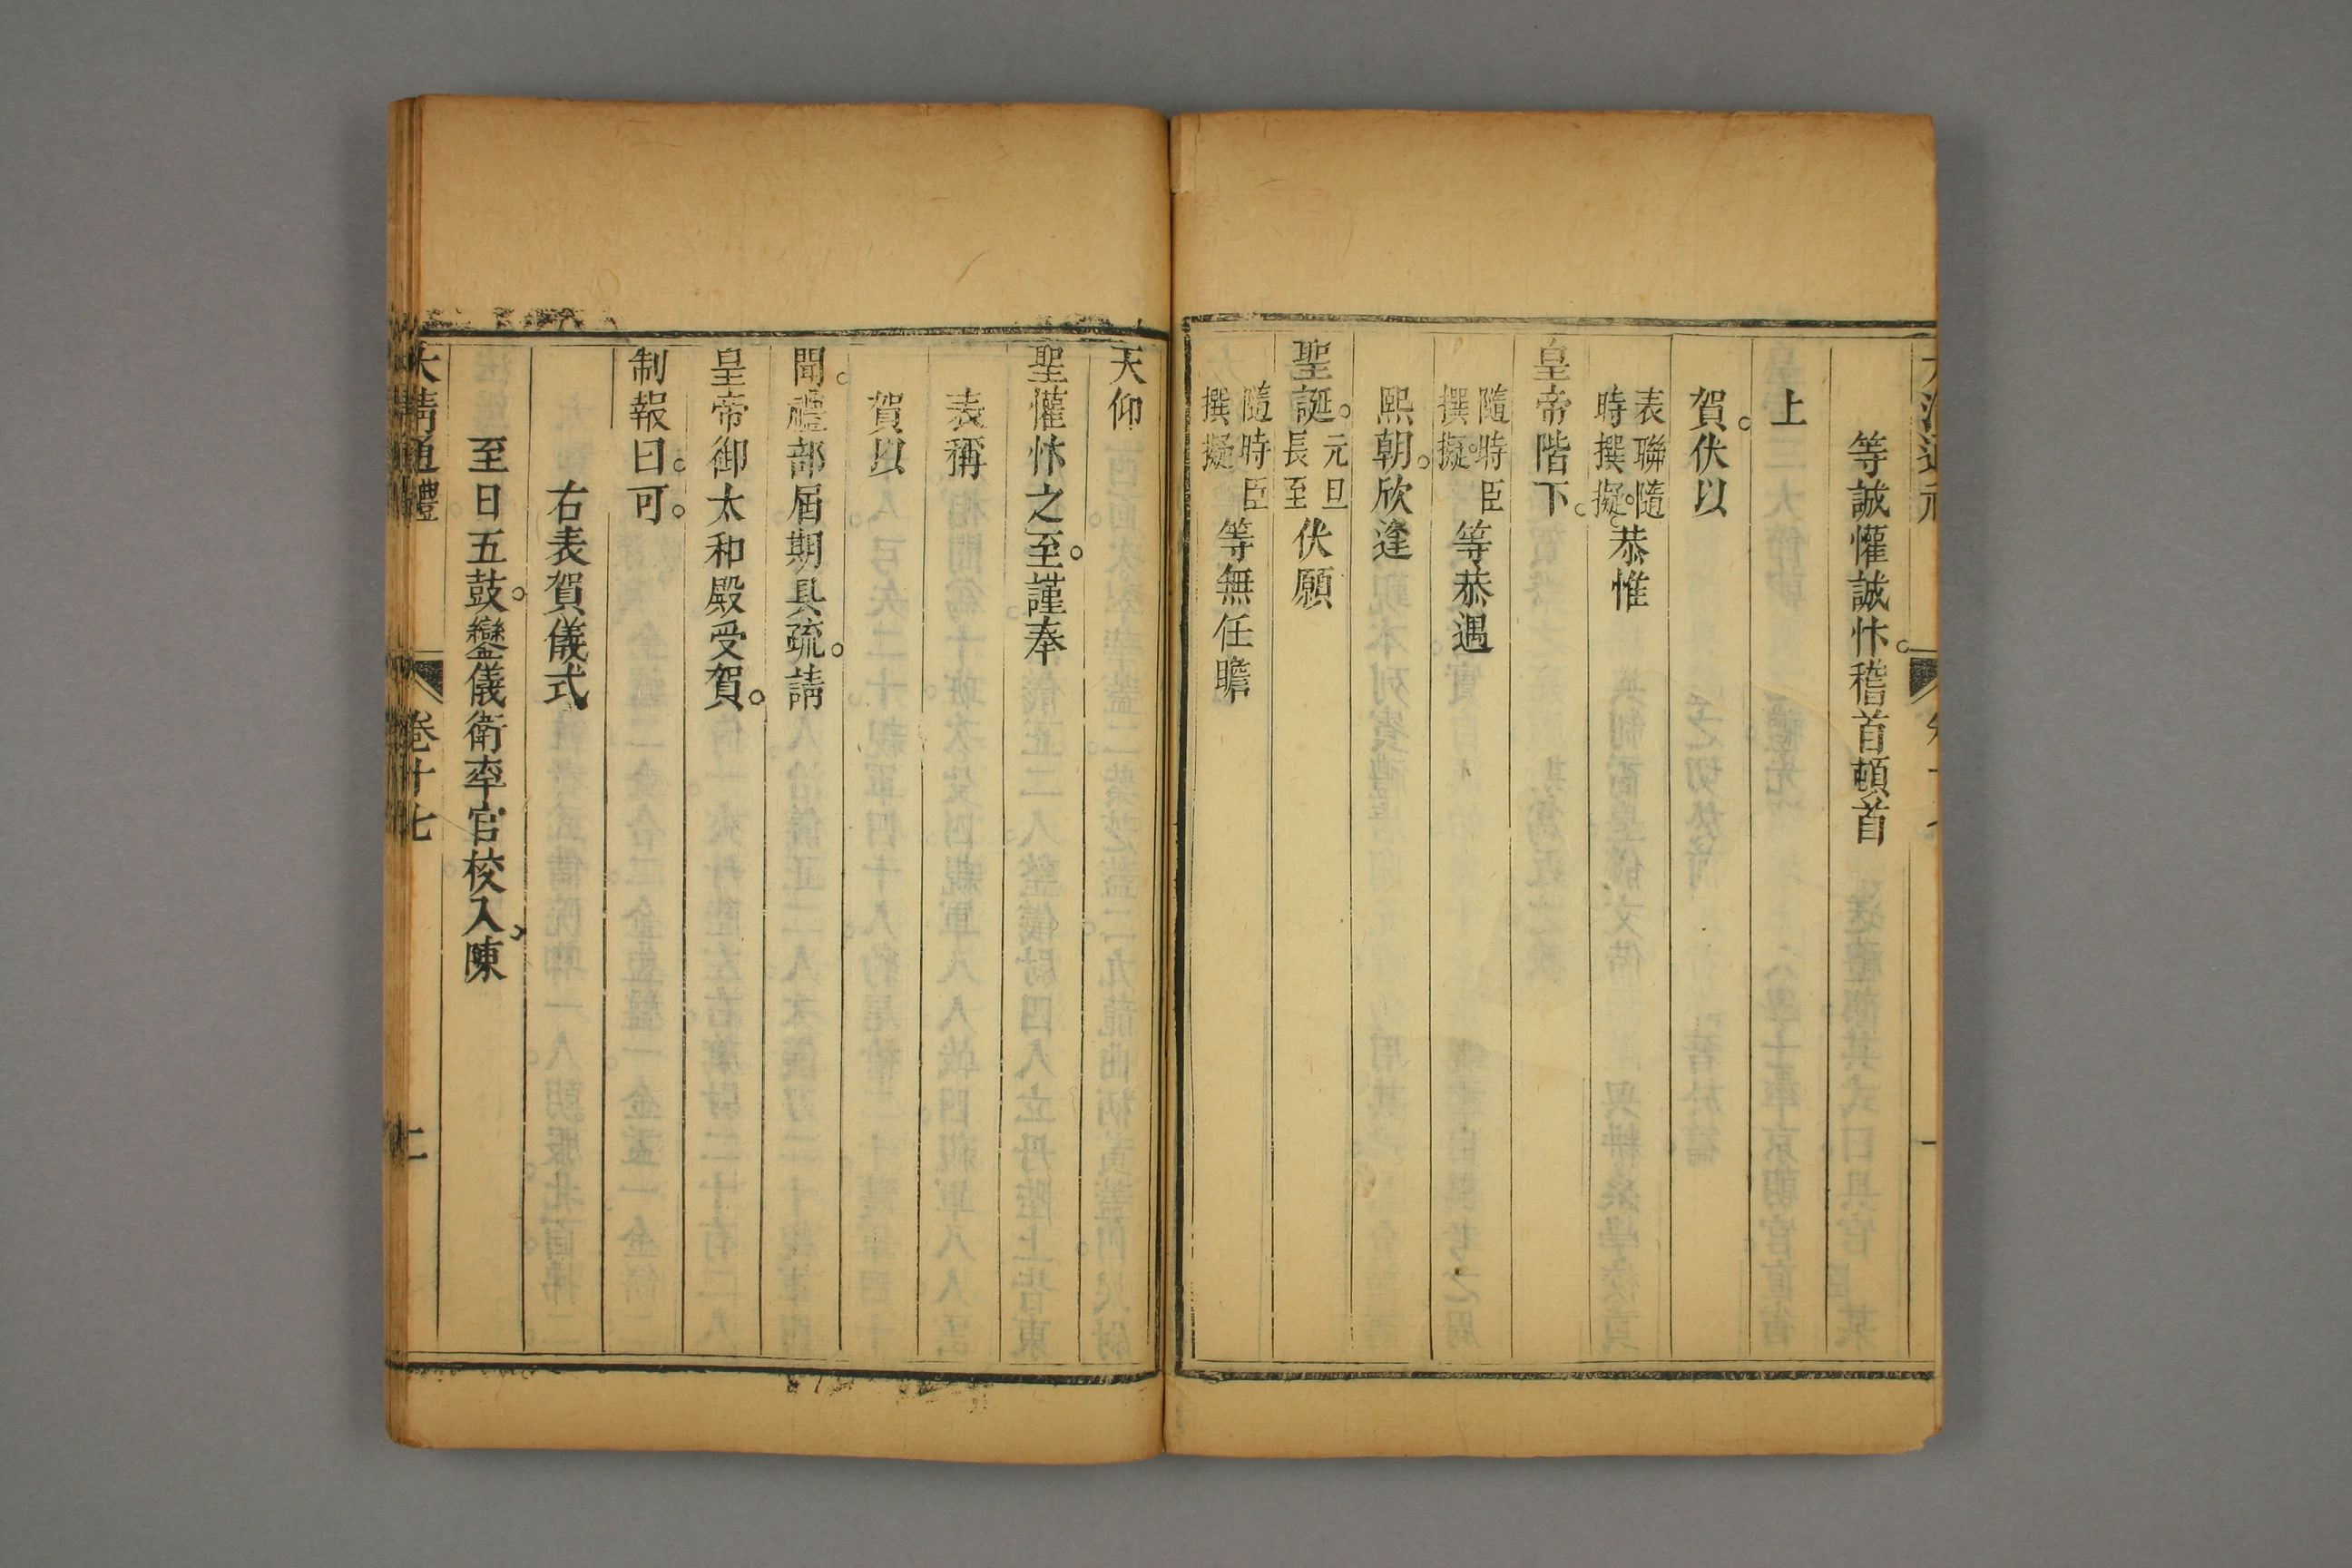 等誠懽誠忭。稽首頓首
上
賀。伏以
表聯隨時撰擬。恭惟
皇帝階下。
隨時撰擬。臣等恭遇
熙朝。欣逢
聖誕。元旦長至伏願
隨時撰擬臣等無任瞻
天仰
聖懽忭之至。謹奉
表稱
賀以
聞。禮部屆期具疏。請
皇帝御太和殿受賀。
制報曰。可。
右表賀儀式
至日五鼓。鑾儀衛率官校入。陳
大清通禮 卷十七 二